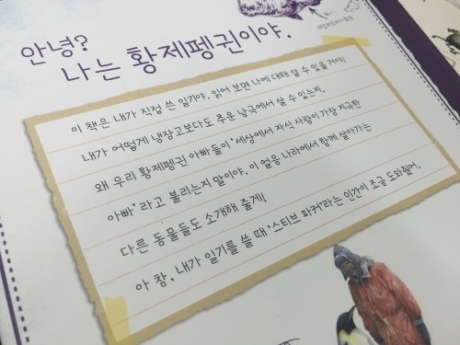 안녕?
나는 황제펭귄이야.
이 책은 내가 직접 쓴 일기야. 읽어 보면 나에 대해 알 수 있을 거야!
내가 어떻게 냉장고보다도 추운 남극에서 살 수 있는지,
왜 우리 황제펭귄 아빠들이 '세상에서 자식 사랑이 가장 지극한
아빠'라고 불리는지 말이야. 이 얼음 나라에서 함께 살아가는
다른 동물들도 소개해 줄게!
아 참, 내가 일기를 쓸 때 '스티브 파커'라는 인간이 조금 도와줬어.